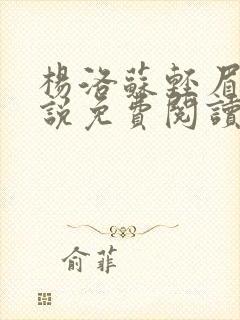 楊洛蘇輕眉
說免費閱讀
俞菲